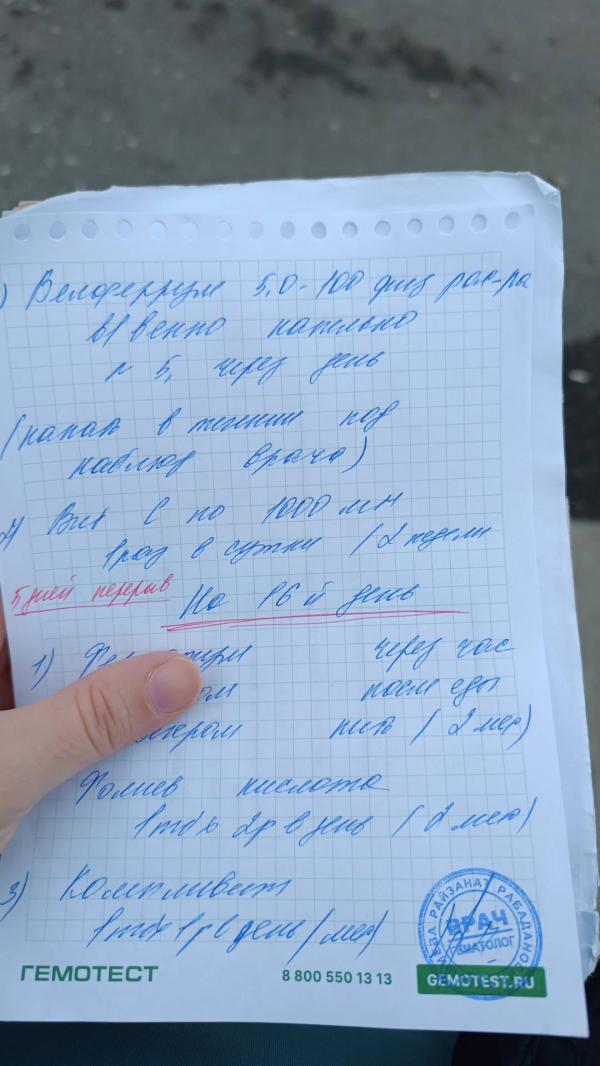 ) Велферрум 5,0 - 100 физ рас-ра
в/венно капельно
N 5, через день
(капать в течении под
наблюд врача)
2) Вит С по 1000 мл
1 раз в сутки (2 недели
5 дней перерыв На 16й день
1) через час
после еды
пить (2 мес)
Фолиев кислота
1 тб х 2р в день (2 мес)
3) Компливит
1 тб х 1 р в день (мес)
РАЙЗАНАТ РАБАДАНОВ
ВРАЧ
ГЕМОТЕСТ 8 800 550 13 13 GEMOTEST.RU